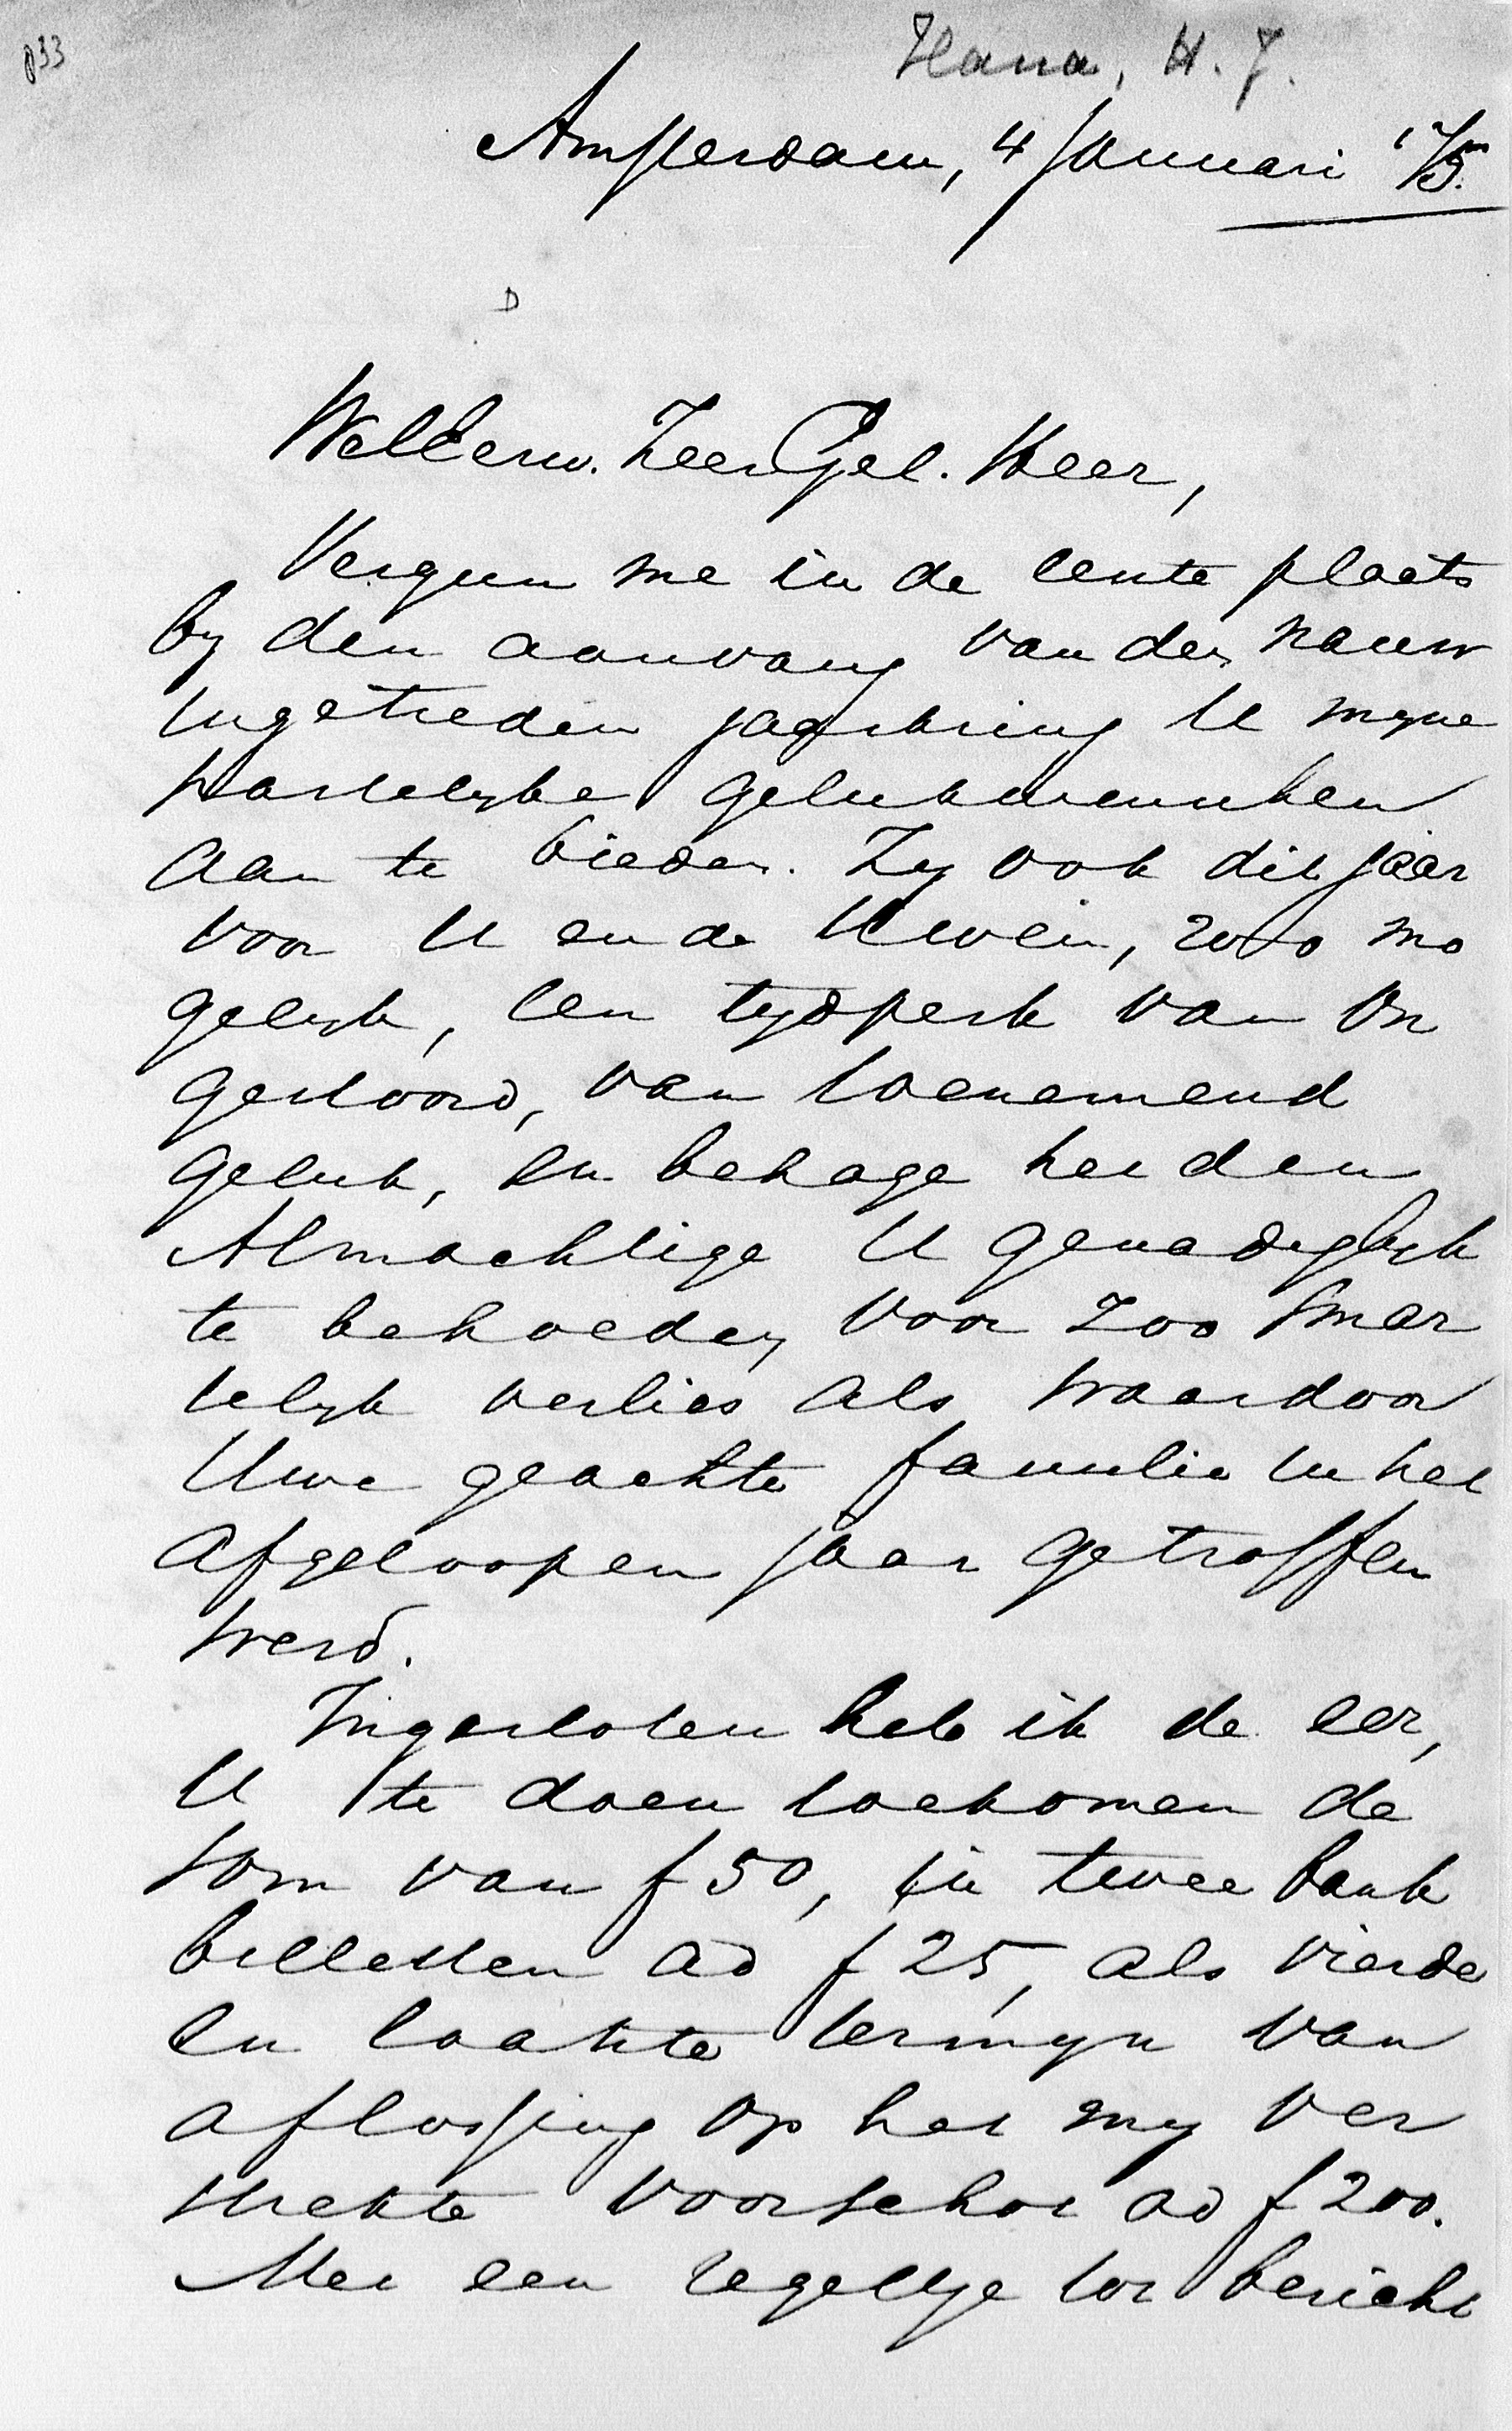 p33
Hana, H. J.
Amsterdam, 4 Januari '75.
D
WelEerw. ZeerGel. Heer,
Vergun me in de eerste plaats
by den aanvang van den nauw
ingetreden jaarkring U myne
hartelyke gelukwenschen
aan te bieden. Zy ook dit jaar
voor U en de Uwen, zoo mo
gelyk, een tydperk van on
gestoord, van toenemend
geluk, en behage het den
Almachtige U genadiglyk
te behoeden voor zoo smar
telyk verlies als waardoor
Uwe geachte familie in het
afgeloopen jaar getroffen
werd.
Ingesloten heb ik de eer,
U te doen toekomen de
som van f 50, in twee bank
billetten ad f 25, als vierde
en laatste termyn van
aflossing op het my ver
strekte voorschot ad f 200.
Met een regeltje tot bericht